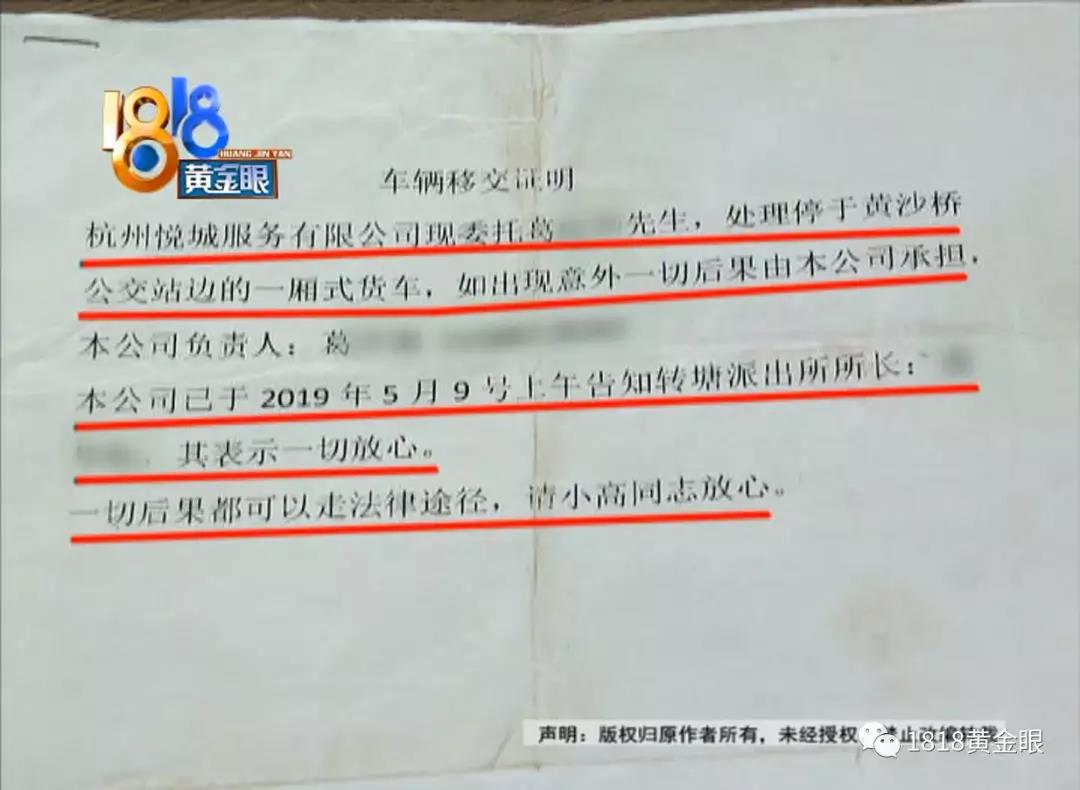 1818
HUANG JIN YAN
黄金眼
车辆移交证明
杭州悦城服务有限公司现委托葛 先生，处理停于黄沙桥
公交站边的一厢式货车，如出现意外一切后果由本公司承担，
本公司负责人：葛
本公司已于 2019 年 5 月 9 号上午告知转塘派出所所长：
其表示一切放心。
一切后果都可以走法律途径，请小高同志放心。
声明：版权归原作者所有，未经授权
1818黄金眼